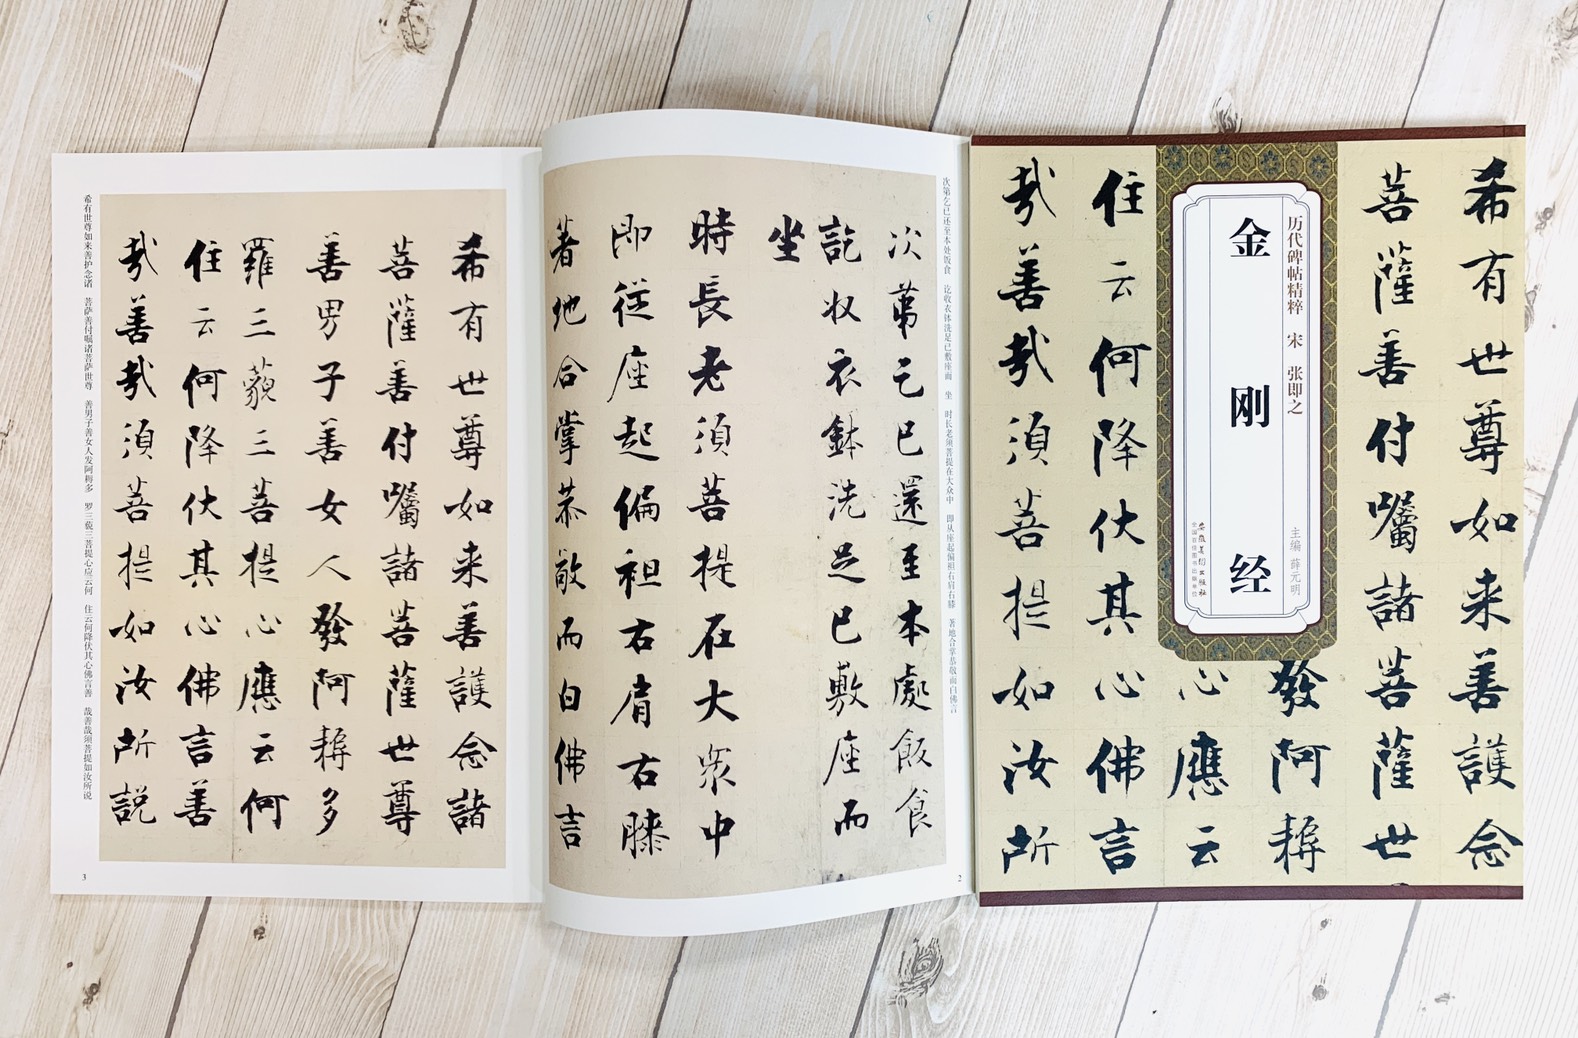 希有世尊如来善護念諸
菩薩善付囑諸菩薩世尊
善男子善女人發阿耨多
羅三藐三菩提心應云何
住云何降伏其心佛言善
哉善哉須菩提如汝所説
希有世尊如来善护念诸 菩萨善付嘱诸菩萨世尊 善男子善女人发阿耨多 罗三藐三菩提心应云何 住云何降伏其心佛言善 哉善哉须菩提如汝所说
3
次第乞已还至本处饭食 讫收衣钵洗足已敷座而 坐 时长老须菩提在大众中 即从座起偏袒右肩右膝 著地合掌恭敬而白佛言
次第乞已還至本處飯食
訖收衣鉢洗足已敷座而
坐
時長老須菩提在大衆中
即從座起偏袒右肩右膝
著地合掌恭敬而白佛言
2
希有世尊如来善護念
菩薩善付囑諸菩薩世
發阿耨
心應云
住云何降伏其心佛言
哉善哉須菩提如汝所
历代碑帖精粹 宋 张即之
金刚经
主编 薛元明
安徽美術出版社
全国百佳图书出版单位